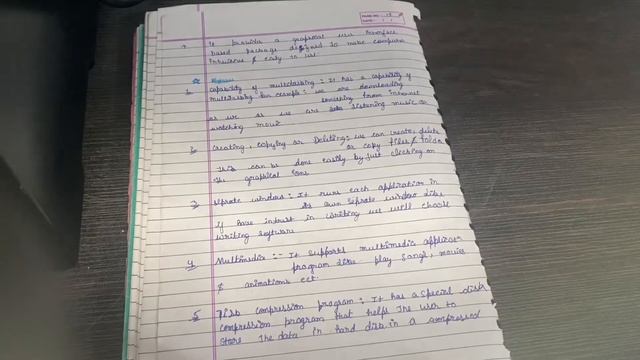 PAGE NO.
DATE
It provides a graphical user interface
based package designed to make computer
intuitive & easy to use.
capability of multitasking : It has a capability of
multitasking for example : we are downloading
something from internet
as we are listening music or
watching movie
creating, copying or Deleting : we can create, delete
or copy files & folder
This can be done easily by just clicking on
the graphical icons
seprate windows : It runs each application in
its own seprate window like
if have intrest in writing we will choose
writing software
4 Multimedia :- It supports multimedia applicat
program like play songs, movies
& animations ect.
5 Disk compression program : It has a special disk
compression program that helps The user to
store The data in hard disk in a compressed